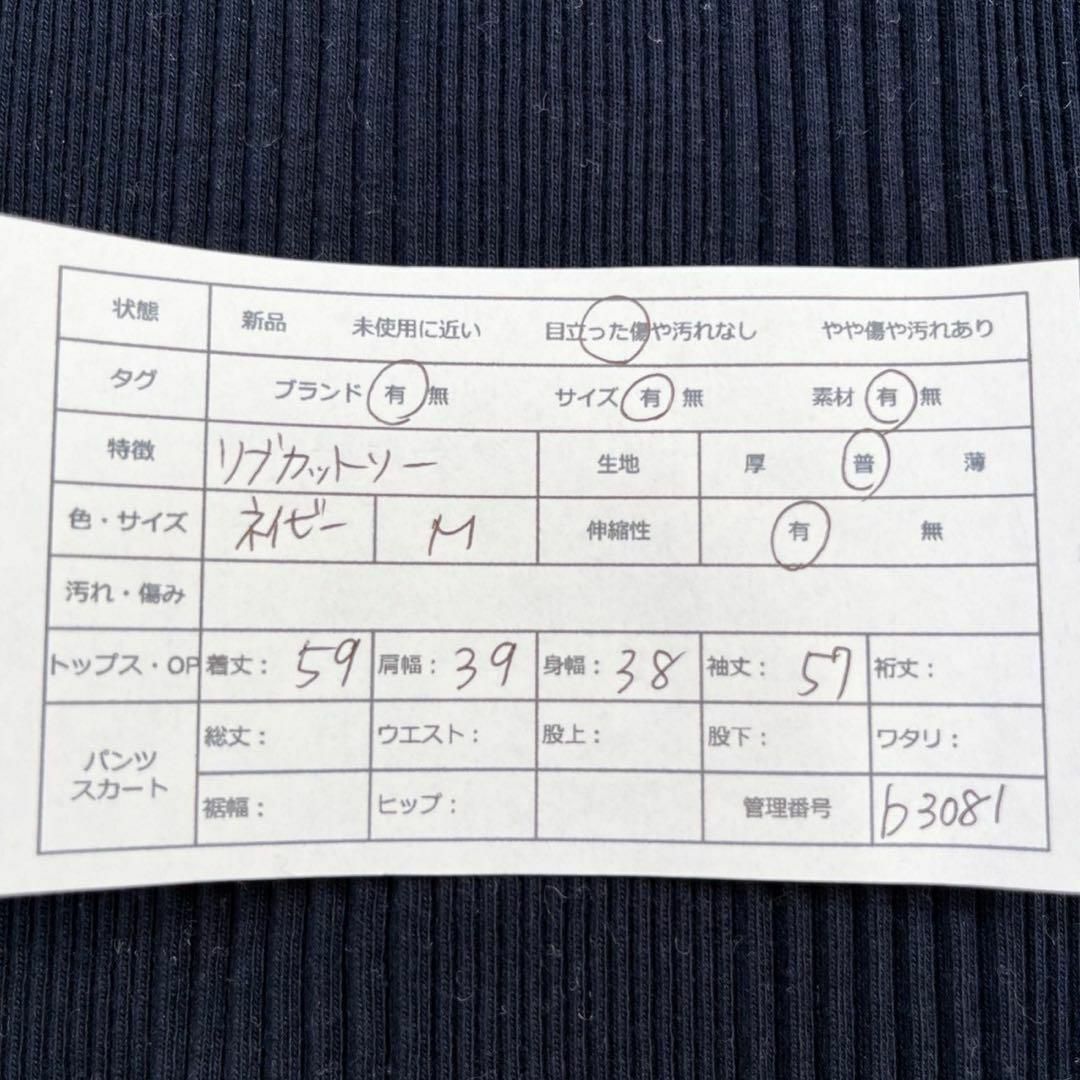 状態 新品 未使用に近い 目立った傷や汚れなし やや傷や汚れあり
タグ ブランド 有 無 サイズ 有 無 素材 有 無
特徴 リブカットソー 生地 厚 普 薄
色・サイズ ネイビー M 伸縮性 有 無
汚れ・傷み
トップス・OP 着丈: 59 肩幅: 39 身幅: 38 袖丈: 57 裄丈:
パンツ スカート 総丈: ウエスト: 股上: 股下: ワタリ:
裾幅: ヒップ: 管理番号 b3081